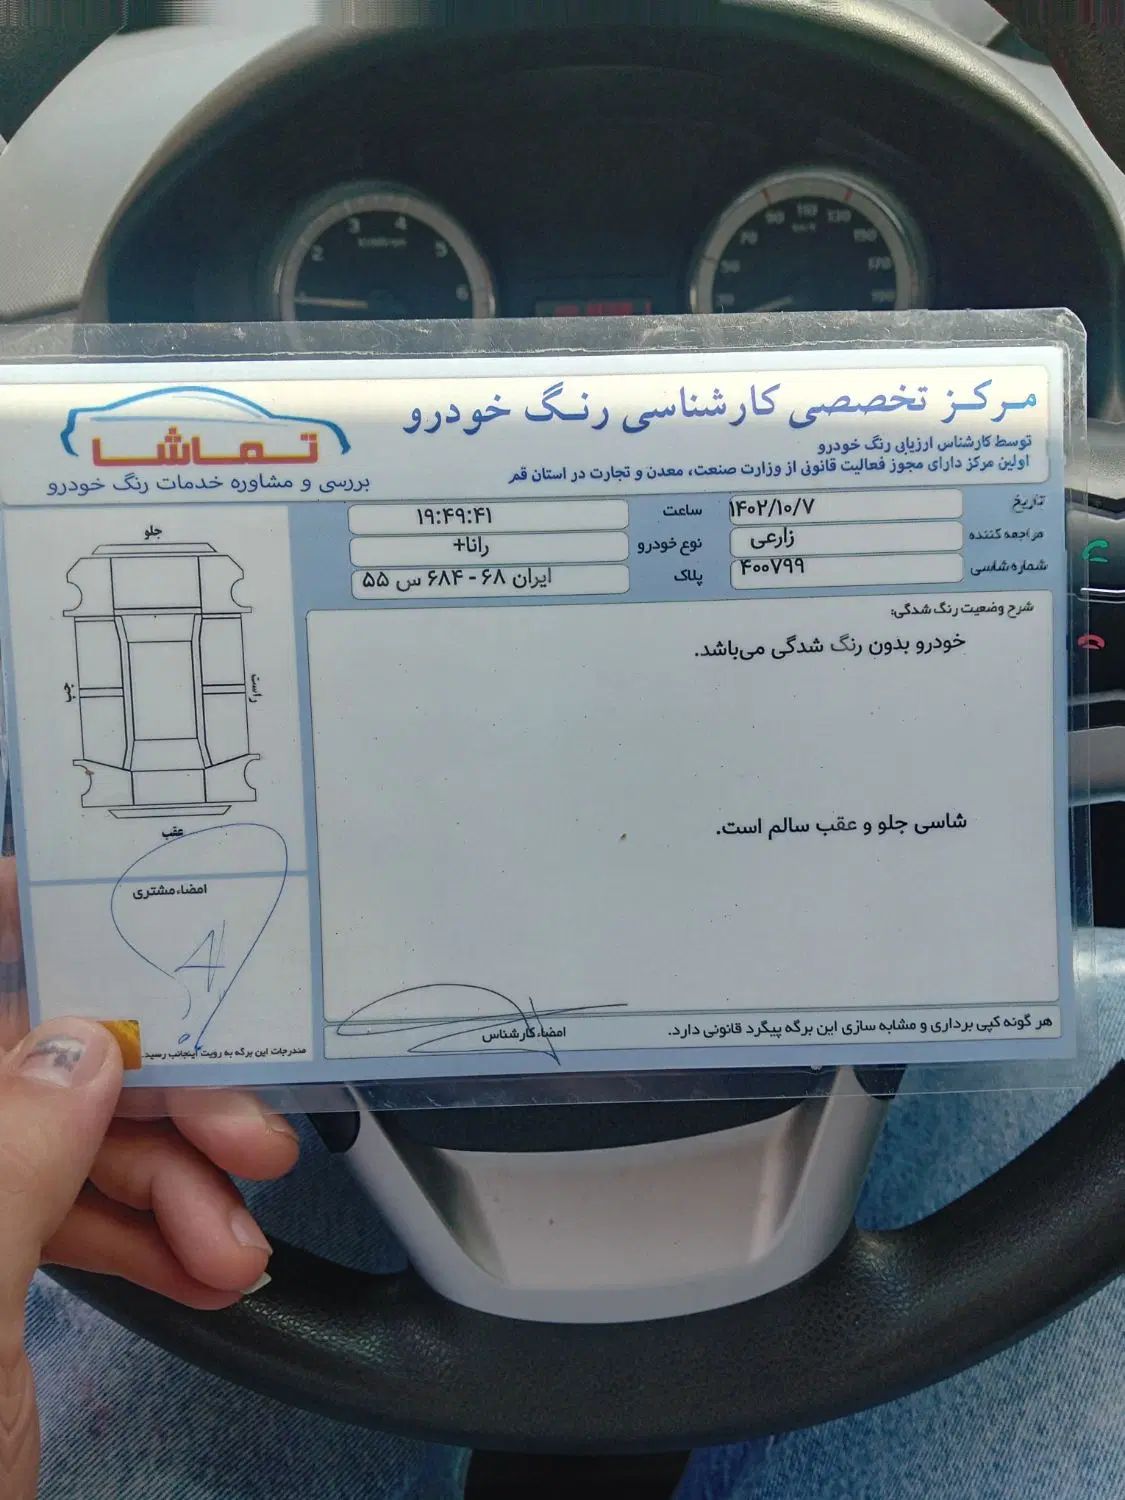 3 4
2 5
6
90 110 130
70 150
50 170
مرکز تخصصی کارشناسی رنگ خودرو
توسط کارشناس ارزیابی رنگ خودرو
اولین مرکز دارای مجوز فعالیت قانونی از وزارت صنعت، معدن و تجارت در استان قم
تماشا
بررسی و مشاوره خدمات رنگ خودرو
تاریخ ۱۴۰۲/۱۰/۷ ساعت ۱۹:۴۹:۴۱
مراجعه کننده زارعی نوع خودرو رانا+
شماره شاسی ۴۰۰۷۹۹ پلاک ایران ۶۸ - ۶۸۴ س ۵۵
شرح وضعیت رنگ شدگی:
خودرو بدون رنگ شدگی می‌باشد.
شاسی جلو و عقب سالم است.
جلو
راست
چپ
عقب
امضاء مشتری
مندرجات این برگه به رویت اینجانب رسید.
امضاء کارشناس
هر گونه کپی برداری و مشابه سازی این برگه پیگرد قانونی دارد.